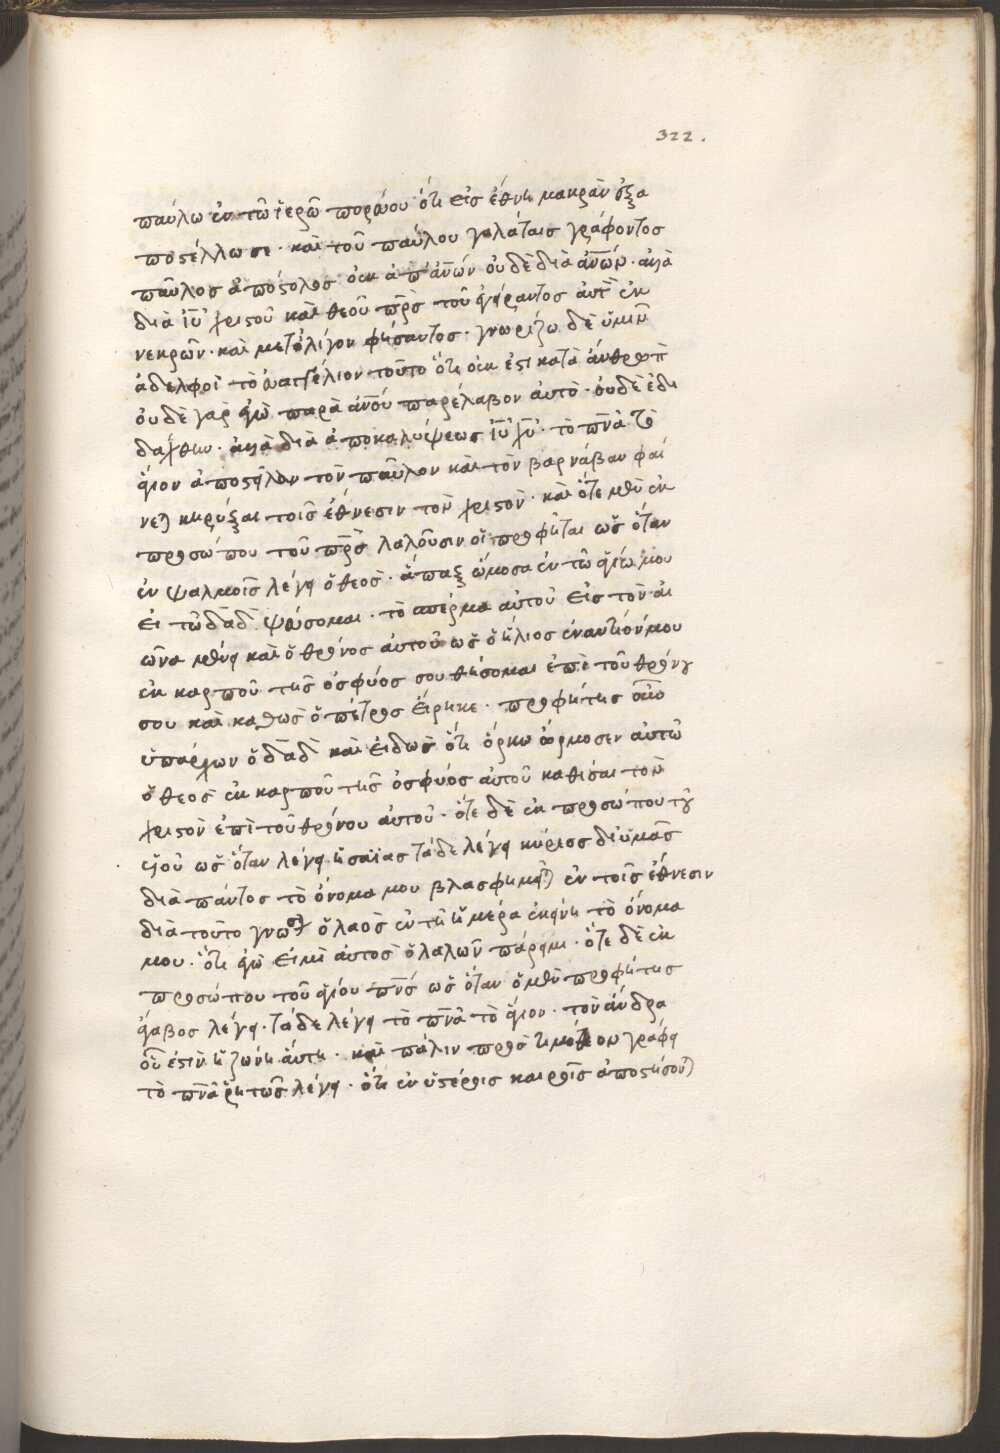 322.
παύλω ἐν τῶ ἱερῶ πορεύου ὅτι εἰς ἔθνη μακρὰν ἐξα
ποστέλλω σε · καὶ τοῦ παύλου γαλάταις γράφοντος
παῦλος ἀπόστολος οὐκ ἀπ' ἀν̅ων οὐδὲ δι' ἀν̅ου · ἀλλὰ
διὰ ιυ̅ χριστοῦ καὶ θεοῦ πρ̅ς τοῦ ἐγείραντος αὐτὸν ἐκ
νεκρῶν · καὶ μετ' ὀλίγον φήσαντος · γνωρίζω δὲ ὑμῖν
ἀδελφοὶ τὸ εὐαγγέλιον τοῦτο ὅτι οὐκ ἔστι κατὰ ἄνθρωπ
οὐδὲ γὰρ ἐγὼ παρὰ ἀν̅ου παρέλαβον αὐτὸ · οὐδὲ ἐδι
δάχθην · ἀλλὰ διὰ ἀποκαλύψεως ιυ̅ χυ̅ · τὸ πν̅α τὸ
ἅγιον ἀποστεῖλαν τὸν παῦλον καὶ τὸν βαρνάβαν φαί
νεται κηρύξαι τοῖς ἔθνεσιν τὸν χριστὸν · καὶ ὅτε μὲν ἐκ
προσώπου τοῦ πρ̅ς λαλοῦσιν οἱ προφῆται ὡς ὅταν
ἐν ψαλμοῖς λέγει ὁ θεός · ἅπαξ ὤμοσα ἐν τῶ ἁγίω μου
εἰ τῶ δαδ̅ ψεύσομαι · τὸ σπέρμα αὐτοῦ εἰς τὸν αἰ
ῶνα μένει καὶ ὁ θρόνος αὐτοῦ ὡς ὁ ἥλιος ἐναντίον μου
ἐκ καρποῦ τῆς ὀσφύος σου θήσομαι ἐπὶ τοῦ θρόνου
σου καὶ καθὼς ὁ πέτρος εἴρηκε · προφήτης οὖν
ὑπάρχων ὁ δαδ̅ καὶ εἰδὼς ὅτι ὅρκω ὤρμοσεν αὐτῶ
ὁ θεὸς ἐκ καρποῦ τῆς ὀσφύος αὐτοῦ καθίσαι τὸν
χριστὸν ἐπὶ τοῦ θρόνου αὐτοῦ · ὅτε δὲ ἐκ προσώπου τοῦ
υἱοῦ ὡς ὅταν λέγει ἡσαΐας τάδε λέγει κύριος δι' ὑμᾶς
διὰ πάντος τὸ ὄνομα μου βλασφημεῖται ἐν τοῖς ἔθνεσιν
διὰ τοῦτο γνώσεται ὁ λαὸς ἐν τῆ ἡμέρα ἐκείνη τὸ ὄνομα
μου · ὅτι ἐγὼ εἰμὶ αὐτὸς ὁ λαλῶν πάρειμι · ὅτε δὲ ἐκ
προσώπου τοῦ ἁγίου πν̅ς ὡς ὅταν ὁ μὲν προφήτης
ἄγαβος λέγει · τάδε λέγει τὸ πν̅α τὸ ἅγιον · τὸν ἄνδρα
οὗ ἐστὶν ἡ ζώνη αὕτη · καὶ πάλιν πρὸς τιμόθεον γράφει
τὸ πν̅α ῥητῶς λέγει · ὅτι ἐν ὑστέροις καιροῖς ἀποστήσονται